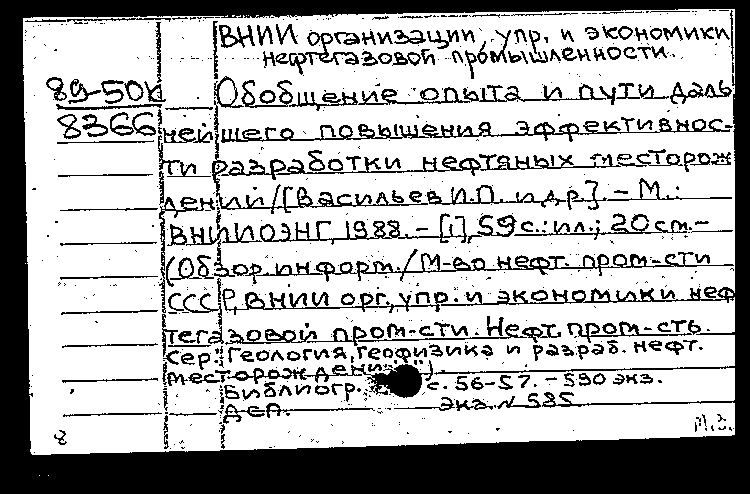 ВНИИ организации, упр. и экономики
нефтегазовой промышленности.
89-50К Обобщение опыта и пути даль
8366 нейшего повышения эффективнос-
ти разработки нефтяных месторож
дений/[Васильев И.П. и др]. – М.:
ВНИИОЭНГ, 1988. – [1], 59 с.: ил.; 20 см. –
(Обзор. информ./М-во нефт. пром-сти
СССР, ВНИИ орг., упр. и экономики неф
тегазовой пром-сти. Нефт. пром-сть.
Сер. "Геология, геофизика и разраб. нефт.
месторождений").
Библиогр. с. 56-57. – 590 экз.
Деп. экз. N 585
8